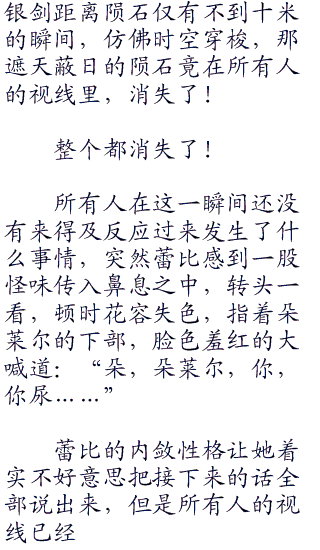 银剑距离陨石仅有不到十米
的瞬间，仿佛时空穿梭，那
遮天蔽日的陨石竟在所有人
的视线里，消失了！
整个都消失了！
所有人在这一瞬间还没
有来得及反应过来发生了什
么事情，突然蕾比感到一股
怪味传入鼻息之中，转头一
看，顿时花容失色，指着朵
莱尔的下部，脸色羞红的大
喊道：“朵，朵莱尔，你，
你尿……”
蕾比的内敛性格让她着
实不好意思把接下来的话全
部说出来，但是所有人的视
线已经